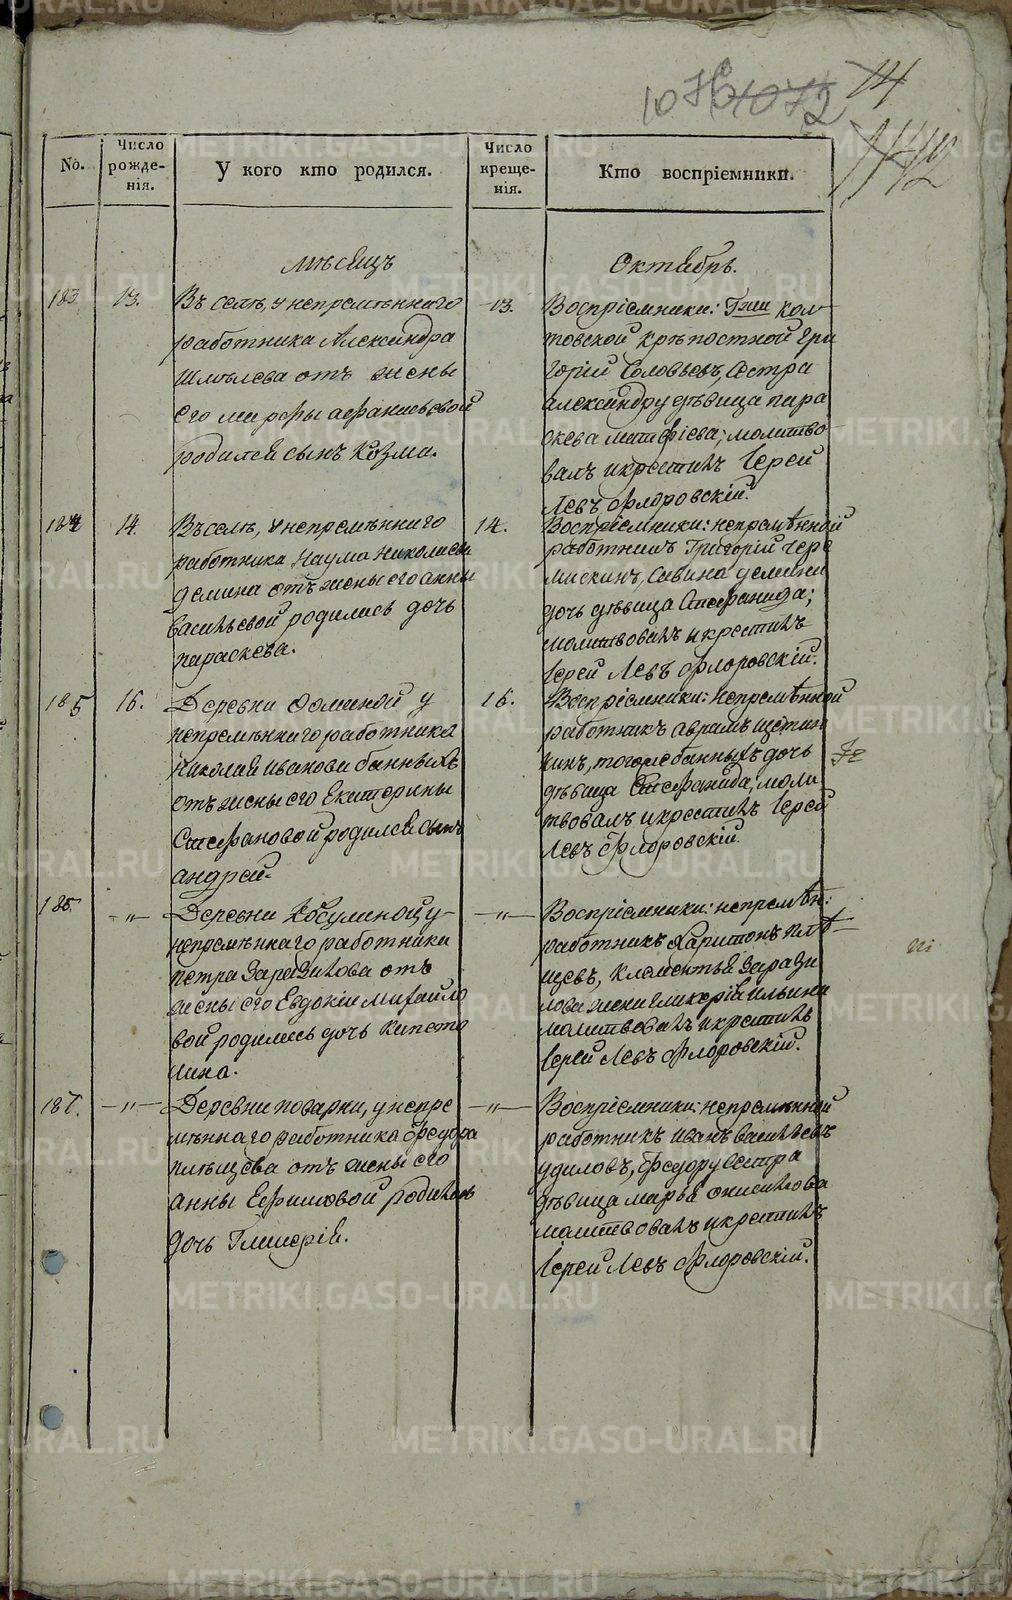 1076 1072 14
No.
Число рожде-нія.
У кого кто родился.
Число креще-нія.
Кто воспріемники.
мѣсяцъ
Октябрь.
183. 13.
Въ селѣ, у непремѣннаго
работника Александра
Шмелева отъ жены
его Марфы Афанасьевой
родился сынъ Козма.
13.
Воспріемники: Гжи кол-
товской крѣпостной Гри
горій Соловьевъ, сестра
Александру дѣвица Пара
скева; молитво
валъ и крестилъ Іерей
Левъ Флоровскій.
184 14.
Въ селѣ, у непремѣннаго
работника Наума Николаева
Демина отъ жены его Анны
Васильевой родилась дочь
Параскева.
14.
Воспріемники: непремѣнной
работникъ Григорій Чере
мискинъ, Савина Демина
дочь дѣвица Стефанида;
молитвовалъ и крестилъ
Іерей Левъ Флоровскій.
185 16.
Деревни Фоминой у
непремѣннаго работника
Николая Иванова Банныхъ
отъ жены его Екатерины
Стефановой родился сынъ
Андрей.
16.
Воспріемники: непремѣнной
работникъ Аврамъ Щетин
кинъ, того же Банныхъ дочь
дѣвица Стефанида; моли
твовалъ и крестилъ Іерей
Левъ Флоровскій.
186. -"-
Деревни Кабулиной у
непремѣннаго работника
Петра Заразилова отъ
жены его Евдокіи Михайло
вой родилась дочь Капето
лина.
-"-
Воспріемники: непремѣн:
работникъ Харитонъ Плѣ-
щевъ, Клементья Зарази
лова жена Гликерія Ильина
молитвовалъ и крестилъ
Іерей Левъ Флоровскій.
187. -"-
Деревни Токарки, у непре
мѣннаго работника Федора
Плѣщева отъ жены его
Анны Ефимовой родилась
дочь Гликерія.
-"-
Воспріемники: непремѣнной
работникъ Иванъ Васильевъ
Удиловъ, Федору сестра
дѣвица Марья Анисимова
молитвовалъ и крестилъ
Іерей Левъ Флоровскій.
METRIKI.GASO-URAL.RU